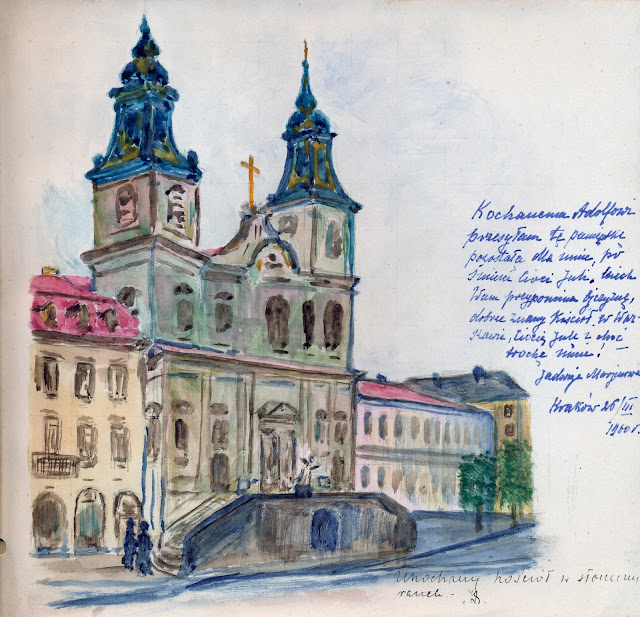 Kochanemu Adolfowi
przesyłam tę pamiątkę
pozostałą dla mnie, po
śmierci Cioci Juli. Niech
Wam przypomina Ojczyznę,
dobrze znany Kościół w War-
szawie, Ciocię Julę i choć
trochę mnie!
Jadwiga
Kraków 26/III
1960 r.
Ukochany kościół w słoneczny
ranek. -